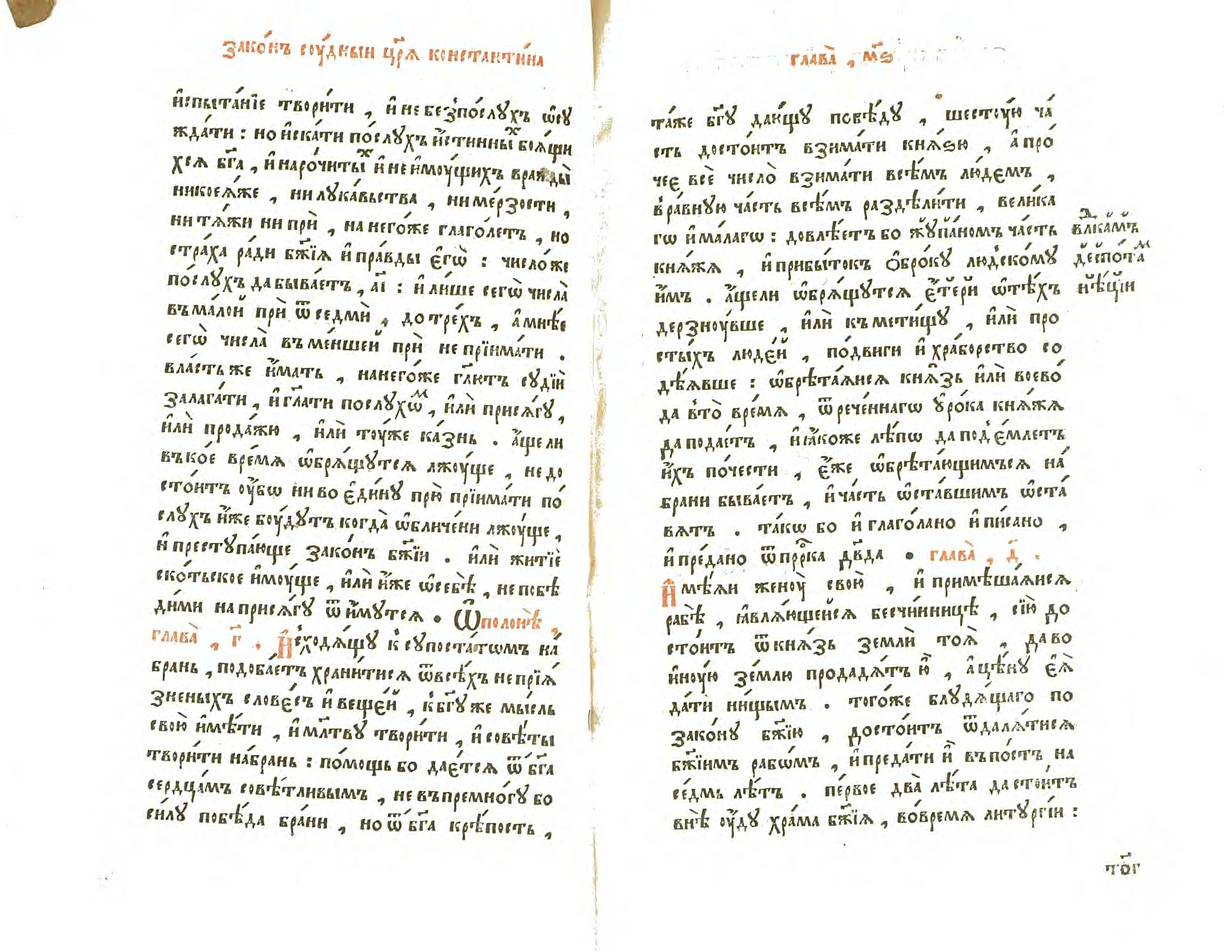 зако́нъ соу́дныи цр҃ѧ константи́на
и҆спыта́нїе твори́ти , и҆ не безпо́слухъ ѡ҆су
жда́ти : но и҆ска́ти по́слухъ и҆́стинныⷯ боѧ́щи
хсѧ бг҃а , и҆ наро́читыⷯ и҆ не и҆мꙋ́щихъ вражды̀
никоеѧ́же , ни лука́вьства , ни ме́рзости ,
ни тѧ́жи ни прѝ , на него́же глаго́летъ , но
стра́ха ради бж҃їѧ и҆ пра́вды є҆гѡ̀ : число́ же
по́слухъ да быва́етъ , а҃і : и҆ ли́ше сегѡ̀ числа̀
въ ма́лой прѝ ѿ седмѝ , до тре́хъ , а҆ мнѣ́е
сегѡ̀ числа̀ въ ме́ншей прѝ не прїима́ти .
вла́сть же и҆́мать , на него́же гл҃ютъ судїѝ
залага́ти , и҆ гл҃ати послухѡ́ⷨ , и҆лѝ присѧ́гу ,
и҆лѝ прода́жю , и҆лѝ тоу́же ка́знь . а҆́ще ли
въ ко́е вре́мѧ ѡ҆брѧ́щутсѧ лжоу́ще , не до
сто́итъ оу҆́бѡ ни во є҆ди́ну прю̀ прїима́ти по́
слухъ и҆́же боу́дутъ когда̀ ѡ҆бличе́ни лжоу́ще ,
и҆ преступа́юще зако́нъ бж҃їи . и҆лѝ житїѐ
ско́тьское и҆моу́ще , и҆лѝ и҆́же ѡ҆ себѣ̀ , не побѣ
ди́ми на присѧ́гу ѿи́мутсѧ . Ѡ҆ поло́нѣ ,
глава̀ , г҃ . И҆сходѧ́щу к супоста́тѡмъ на́
брань , подоба́етъ храни́тисѧ ѿ всѣ́хъ непрїѧ́
зненыхъ слове́съ и҆ веще́й , к бг҃у же мы́сль
свою̀ и҆мѣ́ти , и҆ мл҃тву твори́ти , и҆ совѣ́ты
твори́ти на́брань : по́мощь бо дае́тсѧ ѿ бг҃а
сердца́мъ совѣ́тливымъ , не въ премно́гу бо
си́лу побѣ́да бра́ни , но ѿ бг҃а крѣ́пость ,
глава̀ , м҃ѕ
та́же бг҃у даю́щу повѣ́ду , шесту́ю ча́
сть досто́итъ взима́ти кнѧ́зю , а҆ про́
чеє всѐ число̀ взима́ти всѣ́мъ лю́демъ ,
в ра́вную ча́сть всѣ́мъ раздѣли́ти , вели́ка
гѡ и҆ ма́лагѡ : довлѣ́етъ бо жупа́номъ часть
кнѧ́жѧ , и҆ прибы́токъ ѻ҆бро́ку людско́му
и҆̀мъ . а҆́ще ли ѡ҆брѧ́щутсѧ є҆́тери ѿ тѣ́хъ
дерзноу́вше , и҆лѝ к ъмети́щу , и҆лѝ про
сты́хъ люде́й , по́двиги и҆ хра́борство со
дѣ́ѧвше : ѡ҆брѣта́ѧисѧ кнѧ́зь и҆лѝ воево́
да в то̀ вре́мѧ , ѿ рече́ннагѡ у҆ро́ка кнѧ́жѧ
да пода́стъ , и҆ ꙗ҆́коже лѣ́пѡ да под̾е́млетъ
и҆́хъ по́чести , є҆́же ѡ҆брѣта́ющимъсѧ на́
брани быва́етъ , и҆ ча́сть ѡ҆ста́вшимъ ѡ҆ста́
вѧтъ . та́кѡ бо и҆ глаго́лано и҆ пи́сано ,
и҆ пре́дано ѿ прⷪ҇рка дв҃да . глава̀ , д҃ .
И҆мѣ́ѧи женоу̀ свою̀ , и҆ примѣша́ѧисѧ
рабѣ̀ , ꙗ҆влѧ́ющейсѧ бесчи́нницѣ , сїю̀ до
сто́итъ ѿ кнѧ́зь землѝ тоѧ̀ , да во
и҆ноу́ю зе́млю продадѧ́тъ ю҆̀ , а҆ цѣ́ну є҆ѧ̀
да́ти ни́щымъ . того́же блудѧ́щаго по
зако́ну бж҃їю , досто́итъ ѿдалѧ́тисѧ
бж҃їимъ рабѡ́мъ , и҆ преда́ти и҆̀ въ по́стъ на
се́дмь лѣ́тъ . пе́рвое два̀ лѣ́та да стои́тъ
внѣ̀ оу҆́ду хра́ма бж҃їѧ , во вре́мѧ литургі́и :
влⷣка́мъ
де́спотаⷨ
нѣ́цїи
то҃г